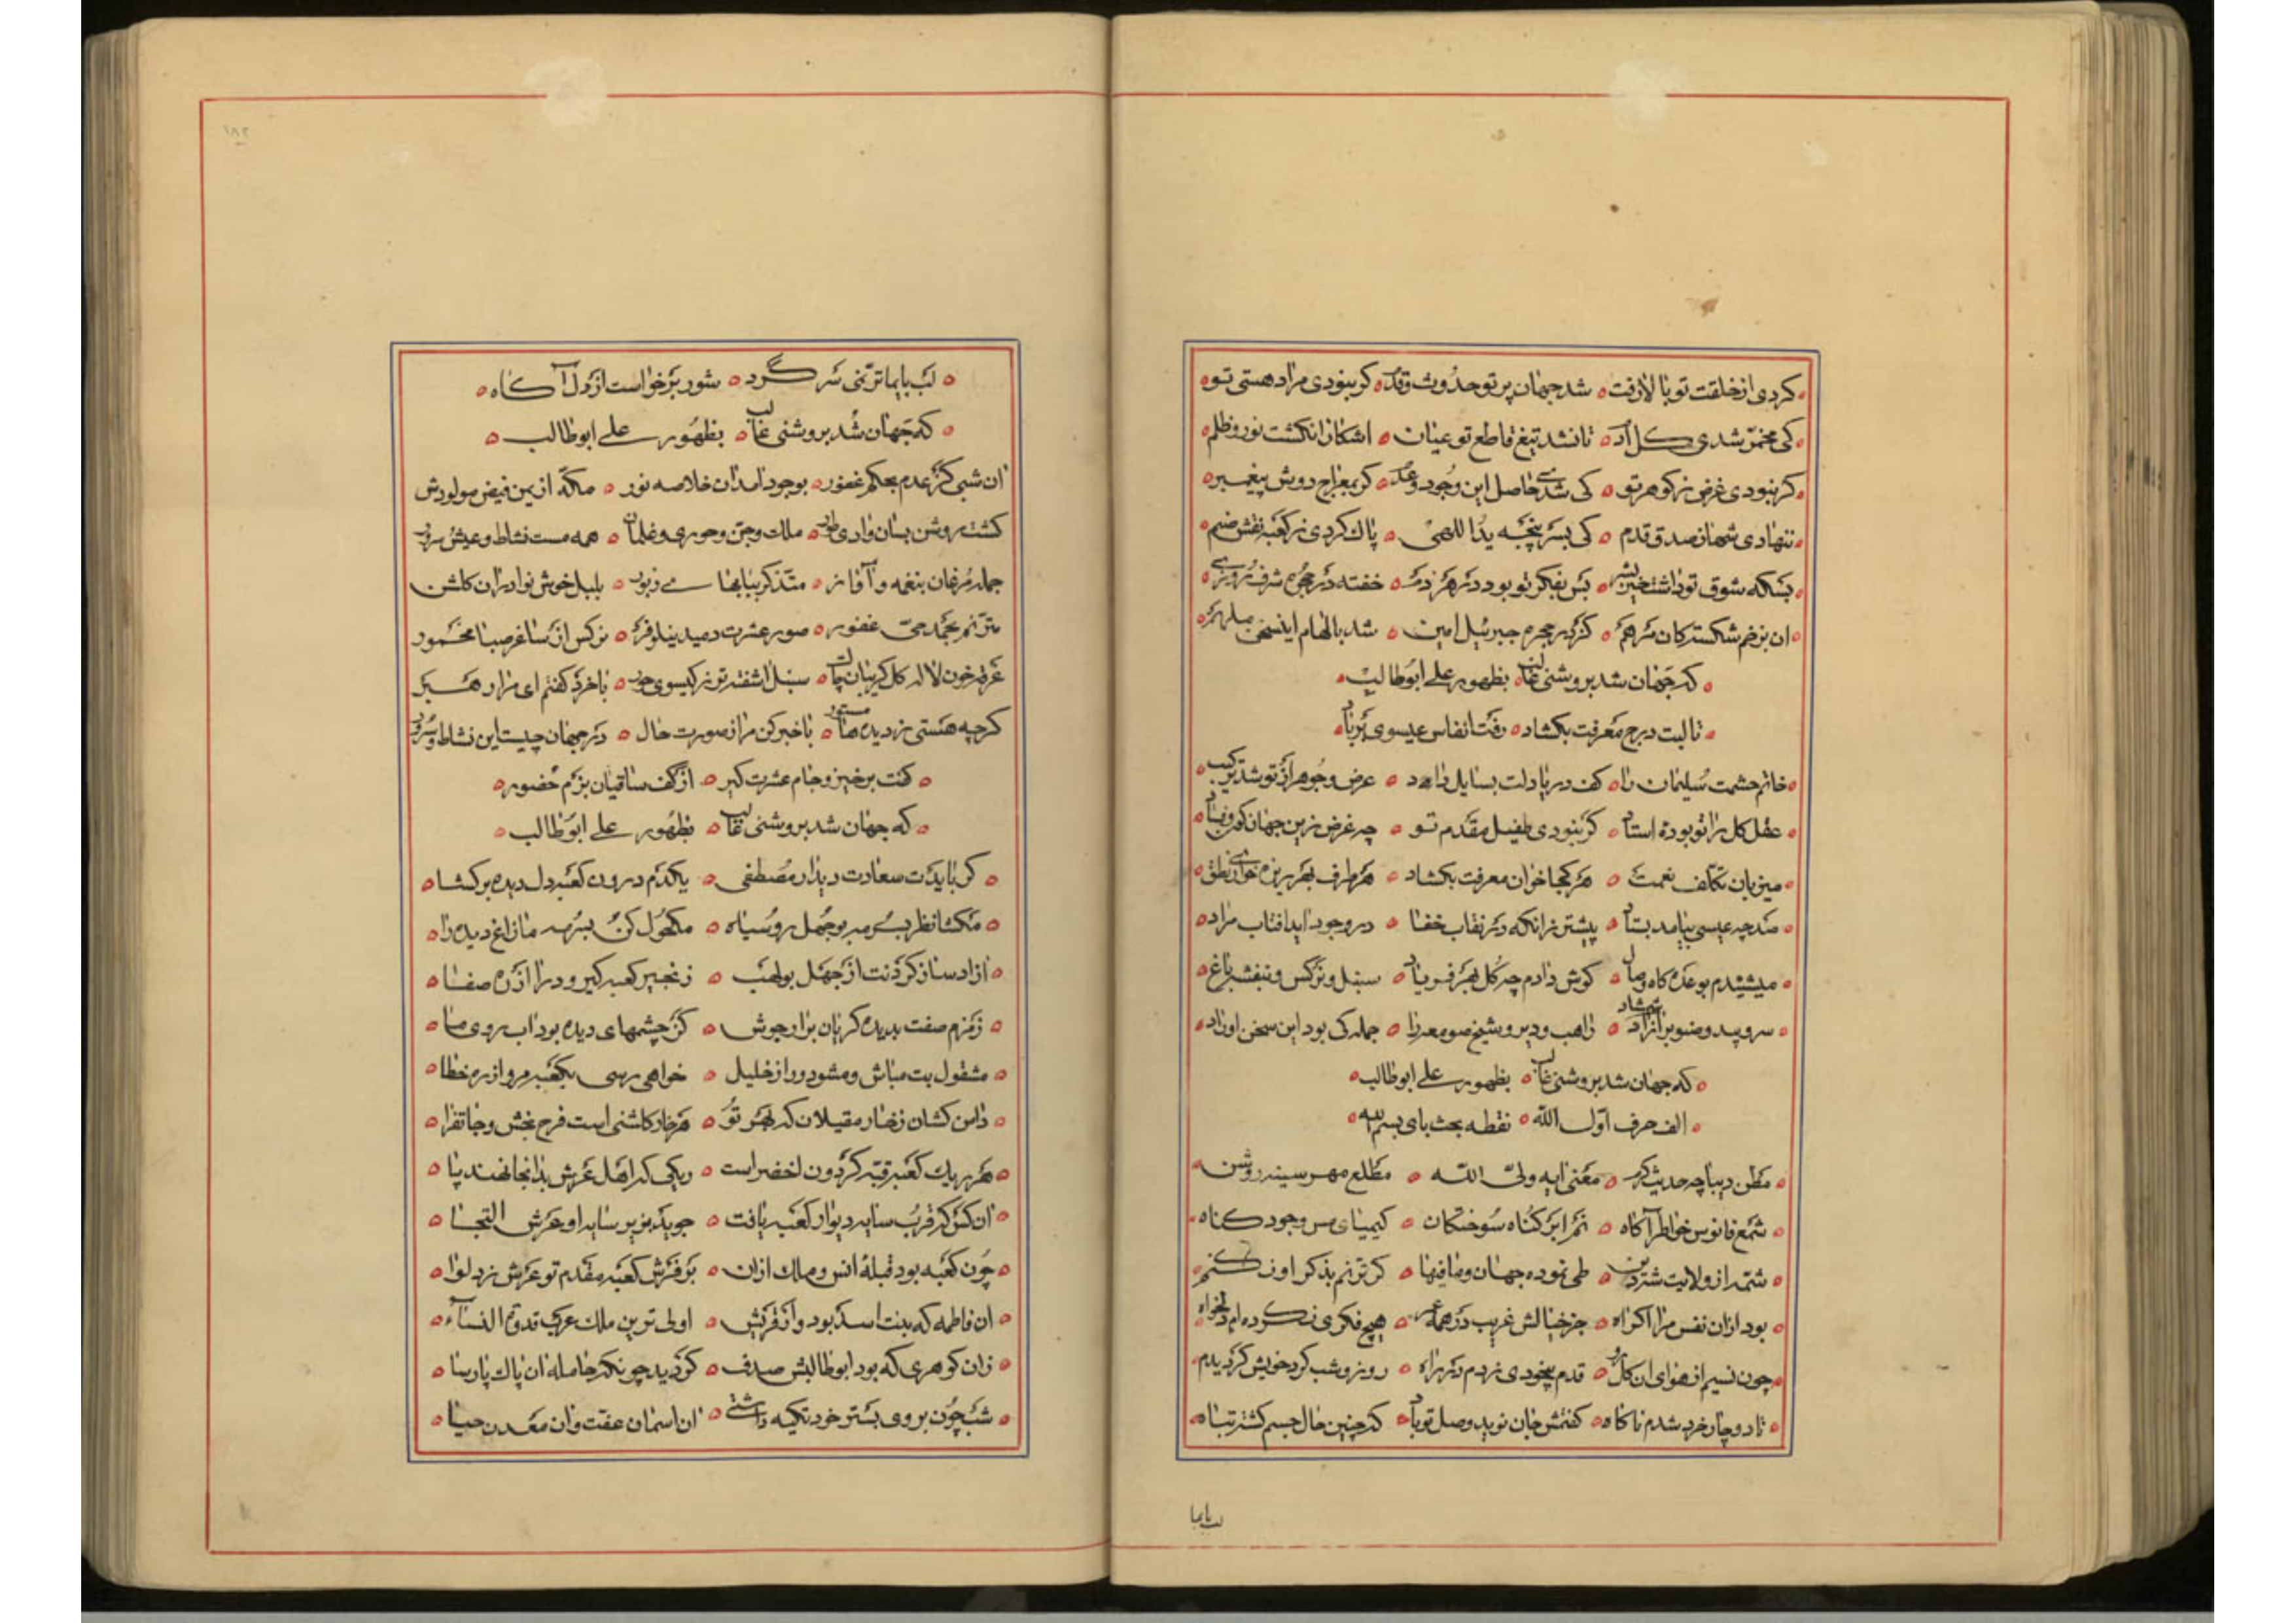 کردی از خلقت تو با لازفت ه شد جهان پر تو حدوث و قدم ه کر نبودی مراد هستی تو
کی مخمر شدی کل آدم ه تا نشد تیغ قاطع تو عیان ه اشکارا نکشت نور و ظلم
کر نبودی غرض ز کوهر تو ه کی شدی حاصل این وجود و عدم ه کر بمعراج دوش پیغمبر
ننهادی شها ز صدق قدم ه کی بسر پنجه یداللهی ه پاک کردی ز کعبه نقش صنم
بسکه شوق تو داشت ه بس بفکر تو بود در هر دم ه خفته در حجره شرف روزی
ان بزخم شکستکان مرهم ه کز در حجره جبرئیل امین ه شد بالهام اینسخن ملهم
که جهان شد بروشنی غالب ه بظهور علی ابوطالب
تا لبت درج معرفت بکشاد ه رفت انفاس عیسوی بر باد
خاتم حشمت سلیمان را ه کف دریا دلت بسایل داد ه عرض و جوهر از تو شد ترکیب
عقل کل را تو بوده استاد ه کر نبودی طفیل مقدم تو ه چه غرض زین جهان کون و فساد
میزبان تکلف نعمت ه هر کجا خوان معرفت بکشاد ه هر طرف بهر ریزه خواری نطق
صد چه عیسی بیامد بستاد ه پیشتر زانکه در نقاب خفا ه در وجود اید افتاب مراد
میشنیدم بوعده کاه وصال ه کوش دادم چه کل بهر فریاد ه سنبل و نرکس و بنفشه باغ
سرو بید و صنوبر ازاد شمشاد ه راهب و دیر و شیخ صومعه را ه جمله کی بود این سخن اوراد
که جهان شد بروشنی غالب ه بظهور علی ابوطالب
الف حرف اول الله ه نقطه بحث بای بسم الله
مطلع دیباچه حدیث کرم ه معنی ایه ولی الله ه مطلع مهر سینه روشن
شمع فانوس خواطر آکاه ه نم ابر کناه سوختکان ه کیمیای مس وجود کناه
شمه از ولایت شتر دین ه طی نموده جهان و مافیها ه کر ترنم بذکر او نکنم
بود ازان نفس مرا اکراه ه جز خیالش غریب در همه عمر ه هیچ فکری نکرده ام دلخواه
چون نسیم از هوای ان کلرو ه قدم بیخودی زدم در راه ه روز و شب کرد خویش کردیدم
تا دوچار خرد شدم ناکاه ه کفتمش جان نوید وصل تو باد ه که چنین حال جسم کشته تباه
لب بایما
۱۸۲
لب بایما ترنمی سر کرد ه شور بر خواست از دل آکاه
که جهان شد بروشنی غالب ه بظهور علی ابوطالب
ان شبی کز عدم بحکم غفور ه بوجود امد ان خلاصه نور ه مکه از یمن فیض مولودش
کشت روشن بسان وادی طور ه ملک و جن و حوری و غلمان ه همه مست نشاط و عیش و سرور
جمله مرغان بنغمه و آواز ه متذکر بنابها می زبور ه بلبل خوش نوا دران کلشن
مترنم بحمد حی غفور ه صور عشرت دمید نیلوفر ه نرکس از ساغر صبا مخمور
غرقه خون لاله کل کریبان چاک ه سنبل اشفته تر ز کیسوی حور ه با خرد کفتم ای مرا رهبر
کرچه هستی ز دیده ها مستور ه با خبر کن مرا ز صورت حال ه در جهان چیست این نشاط و سرور
کفت برخیز و جام عشرت کیر ه از کف ساقیان بزم حضور
که جهان شد بروشنی غالب ه بظهور علی ابوطالب
کر بایدت سعادت دیدار مصطفی ه یکدم درون کعبه دل دیده بر کشا
مکشا نظر بسرمه بوجهل روسیاه ه مکحول کن بسرمه مازاغ دیده را
ازاد ساز کردنت از جهل بولهب ه زنجیر کعبه کیر و درا از ره صفا
زمزم صفت بدیده کریان برار جوش ه کز چشمهای دیده بود اب روی ما
مشغول بت مباش و مشو دور از خلیل ه خواهی رسی بکعبه مرو از ره خطا
دامن کشان ز خار مقیلان که بهر تو ه هر خار کلشنی است فرح بخش و جانفزا
هر ریک کعبه قبه کردون اخضر است ه ریکی که اهل عرش بدانجا نهند پا
ان کس که قرب سایه دیوار کعبه یافت ه جوید بزیر سایه او عرش التجا
چون کعبه بود قبله انس و ملک ازان ه بر فرش کعبه مقدم تو عرش زد لوا
ان فاطمه که بنت اسد بود و از قریش ه اولی ترین ملک عرب قدوة النساء
زان کوهری که بود ابوطالبش صدف ه کردید چونکه حامله ان پاک پارسا
شب چون بروی بستر خود تکیه داشتی ه ان اسمان عفت وان معدن حیا